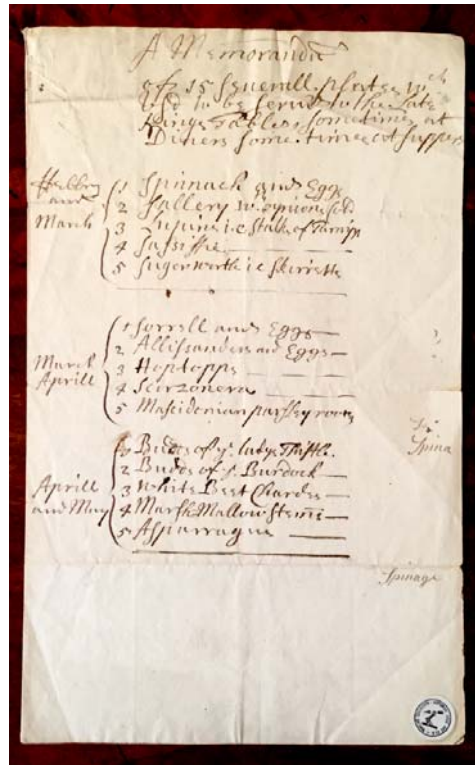 A Memorandũ
of 15 seuerall plates wch
Used to be serud to the Late
Kings Tables sometimes at
Diners some times at supper
Febbry
and
March
1 Spinnack and Eggs
2 Sallery w. oynions
3 i.e Stalks of Turnips
4 Sassiffie
5 Sugerworth i.e Skirretts
March
Aprill
1 Sorrell and Eggs
2 Allissanders and Eggs
3 Hoptopps
4 Scorzonera
5 Masedenian parsley roots
Aprill
and May
1 Budds of ye. ladys Thistle.
2 Budds of ye Burdock
3 White Beet Chardes
4 Marsh Mallow Stems
5 Asparragus
Spina
Spinage